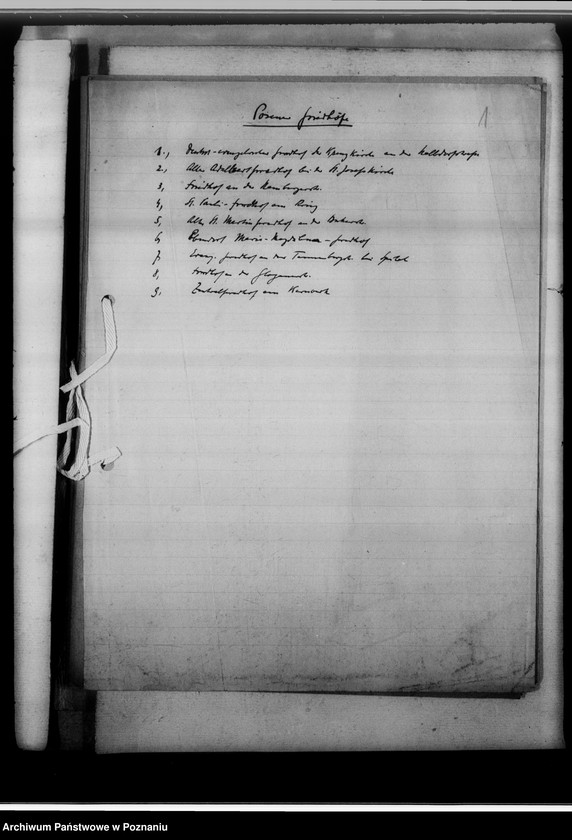 Posener Friedhöfe
1
1., Deutsch-evangelischer Friedhof der Kreuzkirche an der
2, Alter Adalbertfriedhof bei der St. Josefskirche
3, Friedhof an der
4, St. Pauli-Friedhof am Ring
5, Alter St. Martinfriedhof an der Bukerstr.
6, Maria-Magdalenen-Friedhof
7, Evang. Friedhof an der bei
8, Friedhof an der Glogauerstr.
9, Zentralfriedhof am
Archiwum Państwowe w Poznaniu